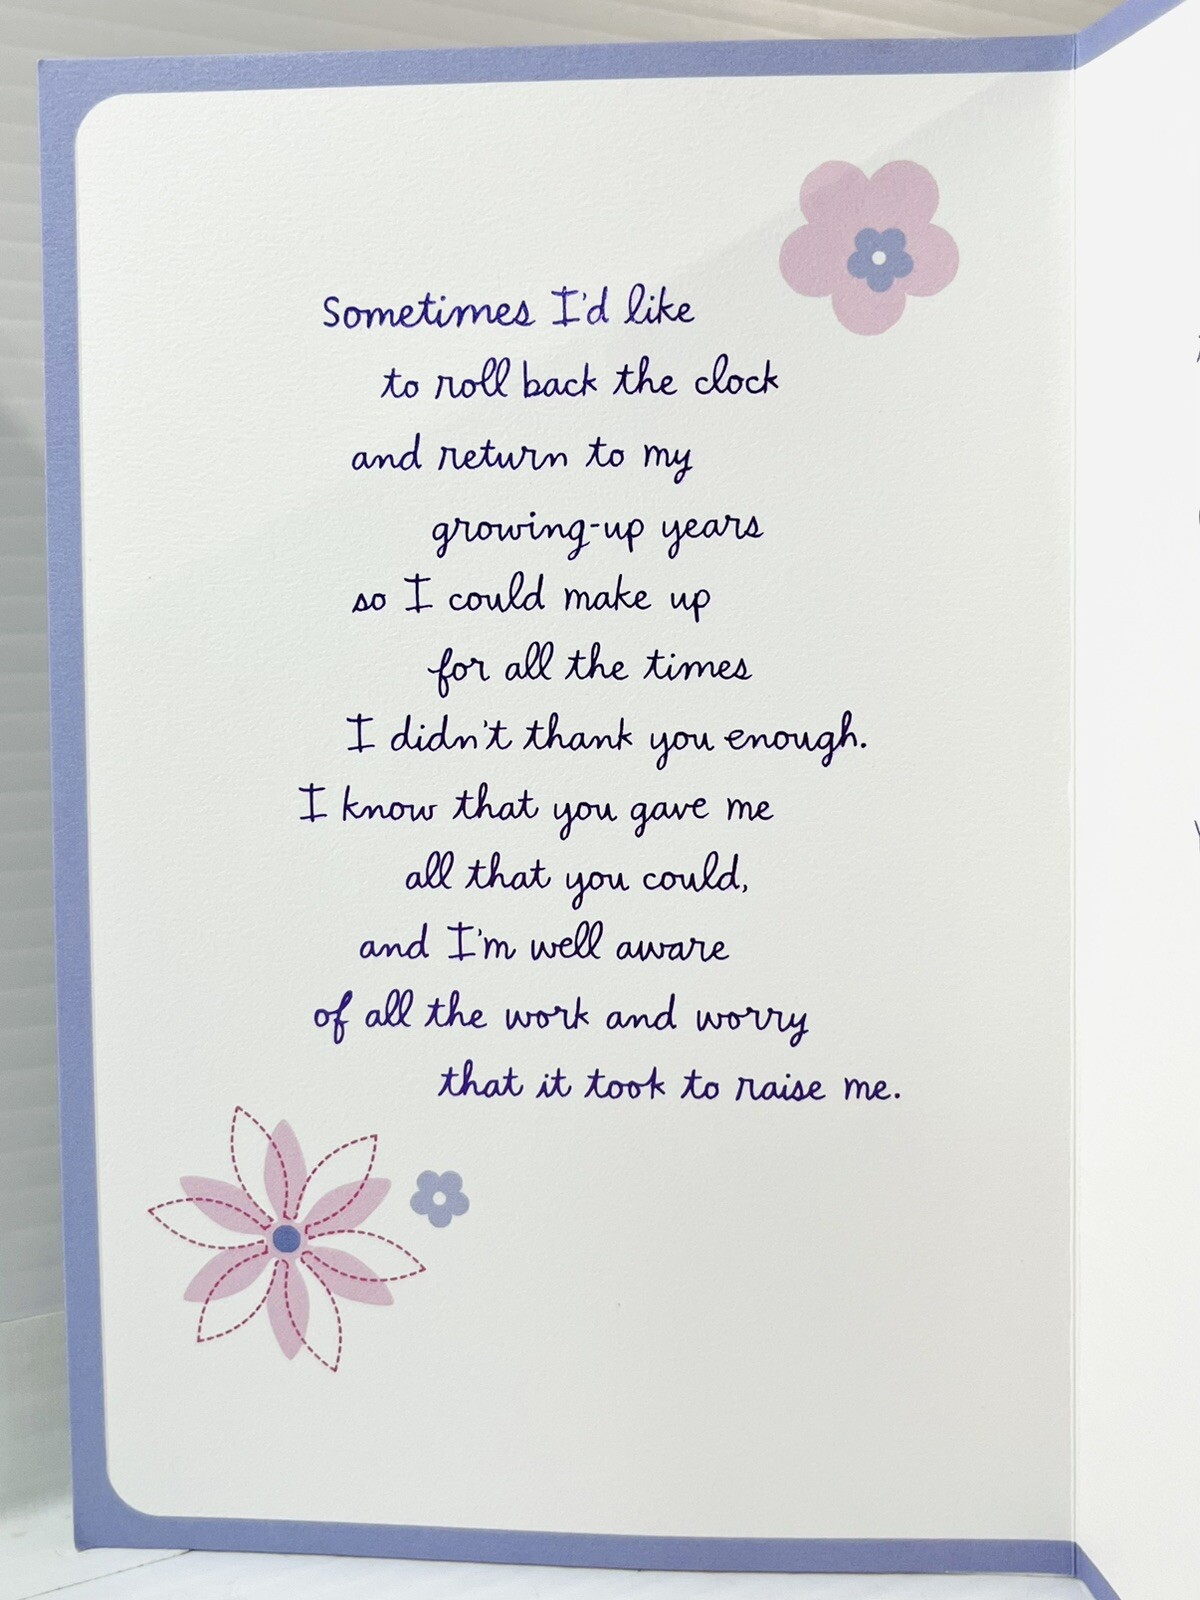 Sometimes I'd like
to roll back the clock
and return to my
growing-up years
so I could make up
for all the times
I didn't thank you enough.
I know that you gave me
all that you could,
and I'm well aware
of all the work and worry
that it took to raise me.